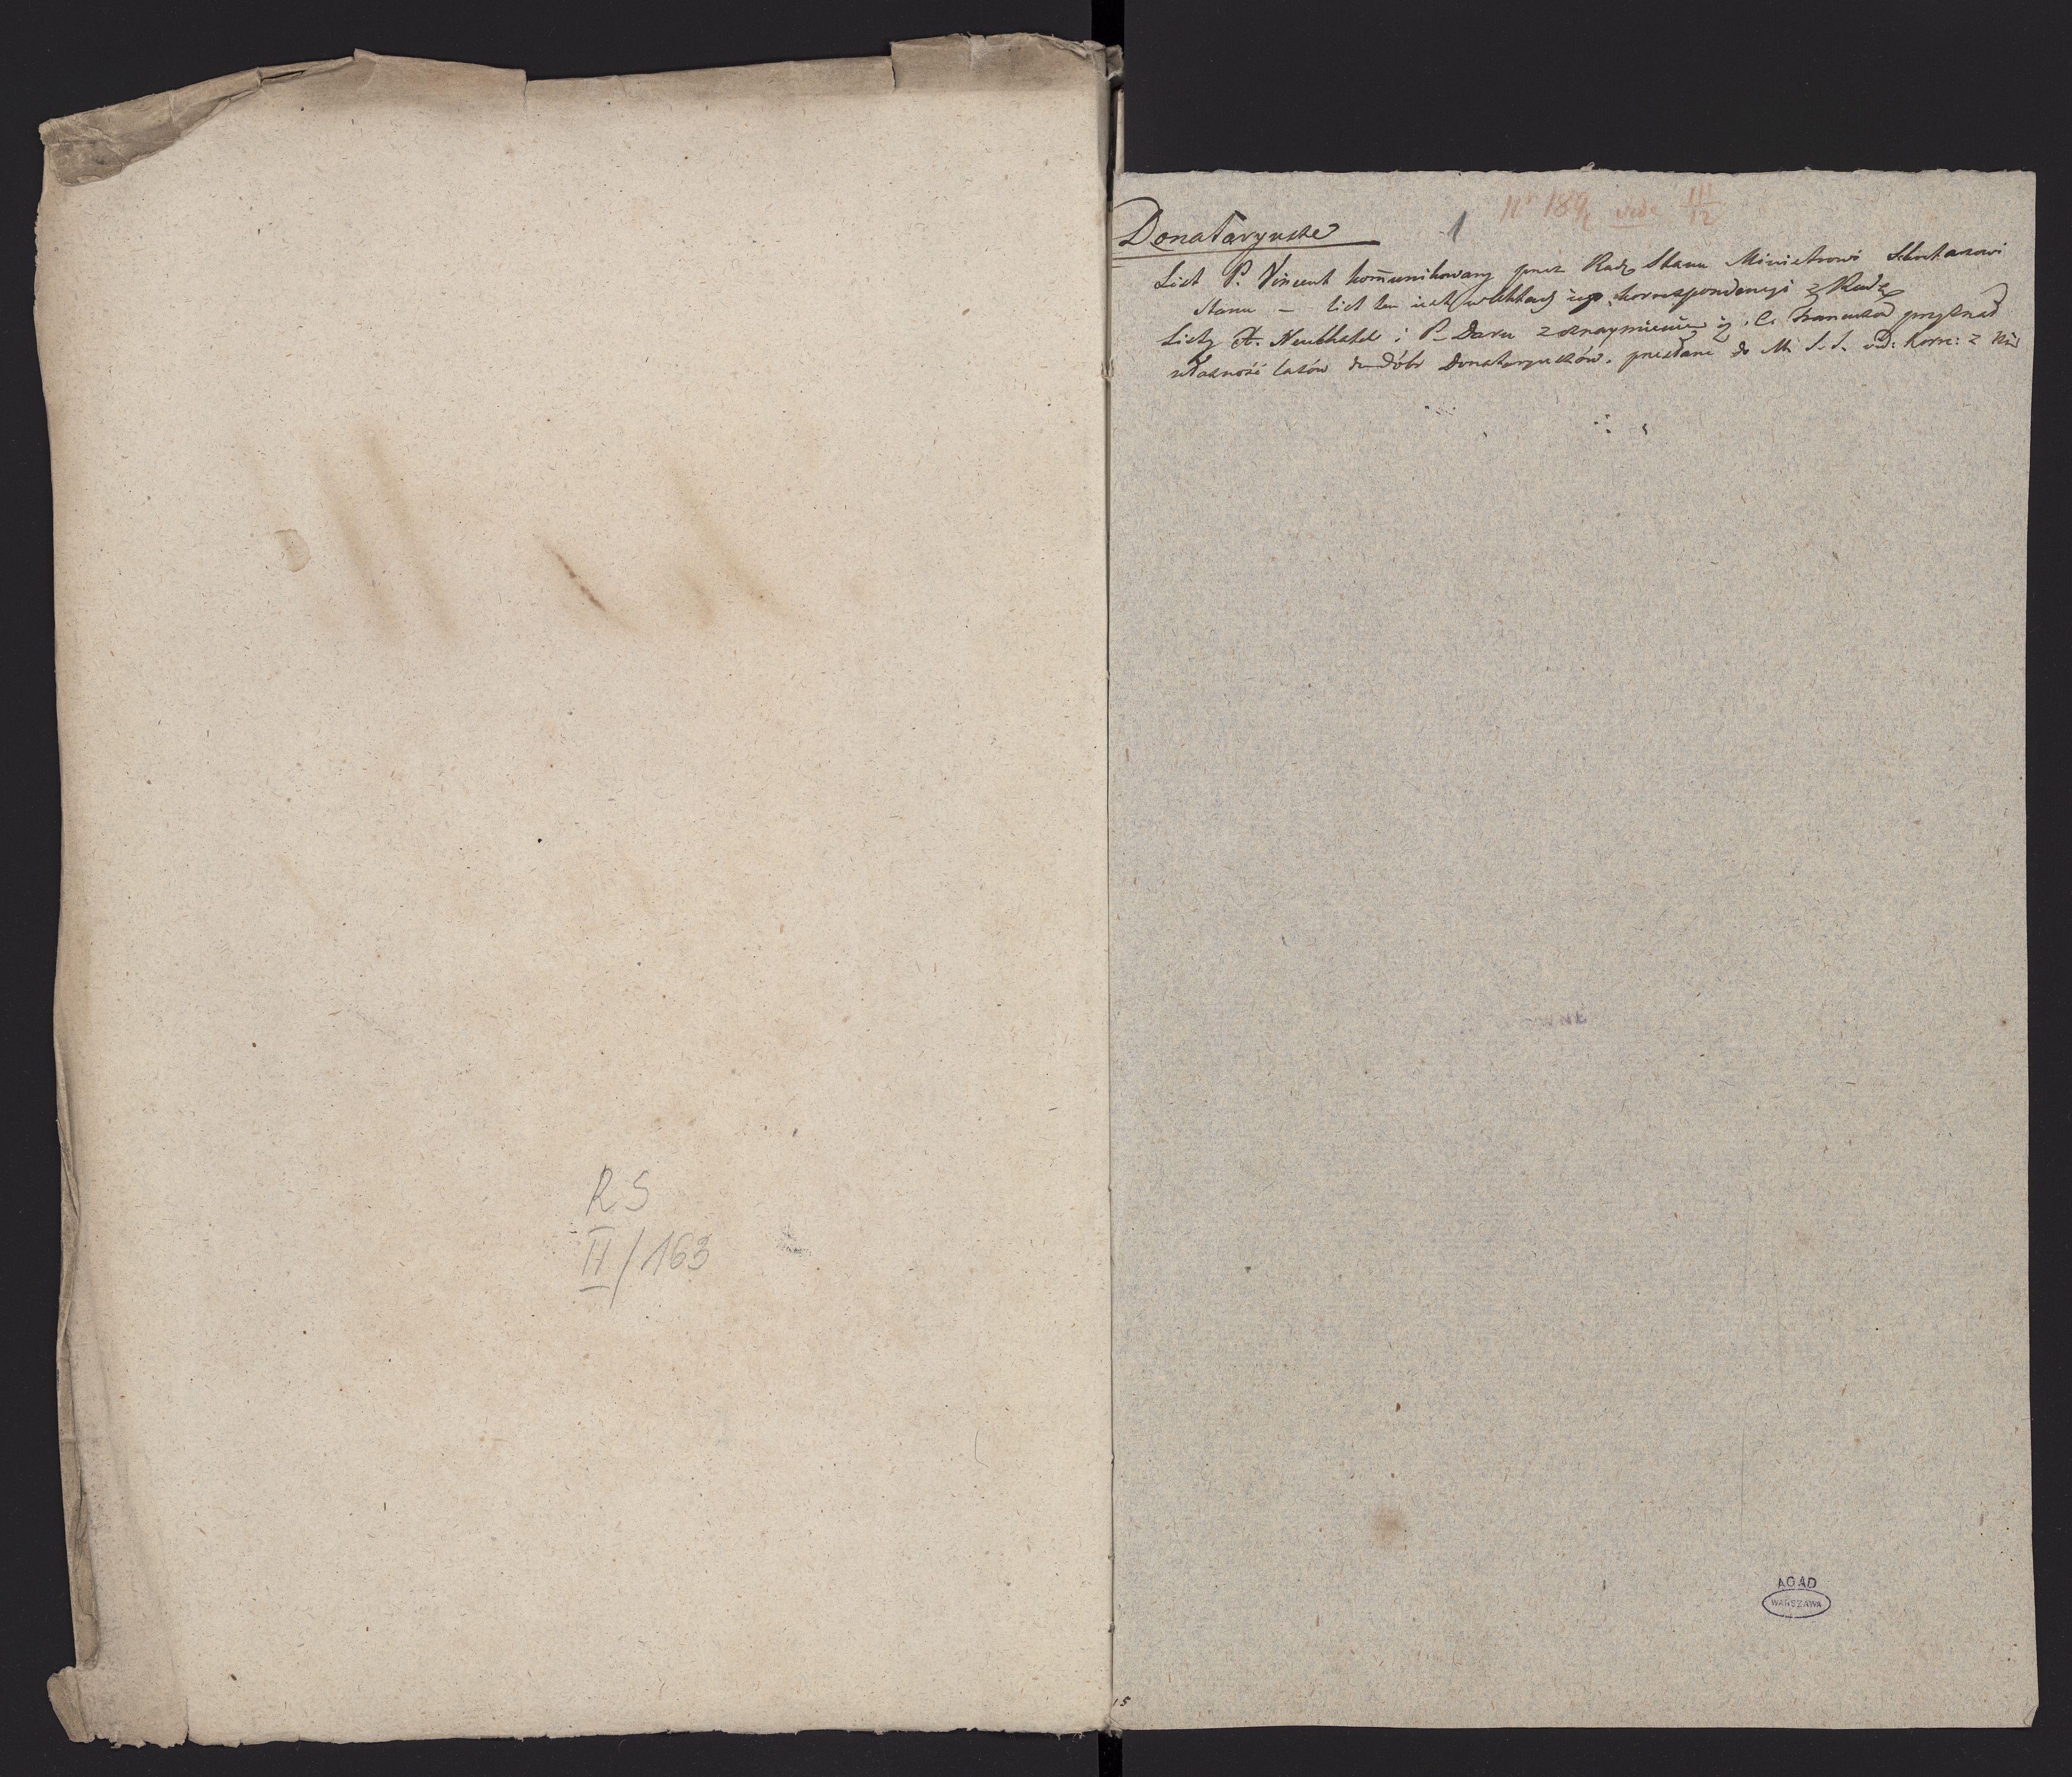 RS
II/163
Donataryusze
1
N° 189/2 vide III/12
List P. Vincent kom̄unikowany przez Radę Stanu Ministrowi Sekretarzowi
Stanu – list ten iest w aktach iego korrespondencyi z Radą
Listy X. Neuchatel i P. Daru z oznaymieniem iż C. Francuzów przyznał
własność lasów do dóbr Donataryuszów. przesłane do M. S. S. vid: korr: z Nim
AGAD
WARSZAWA
15